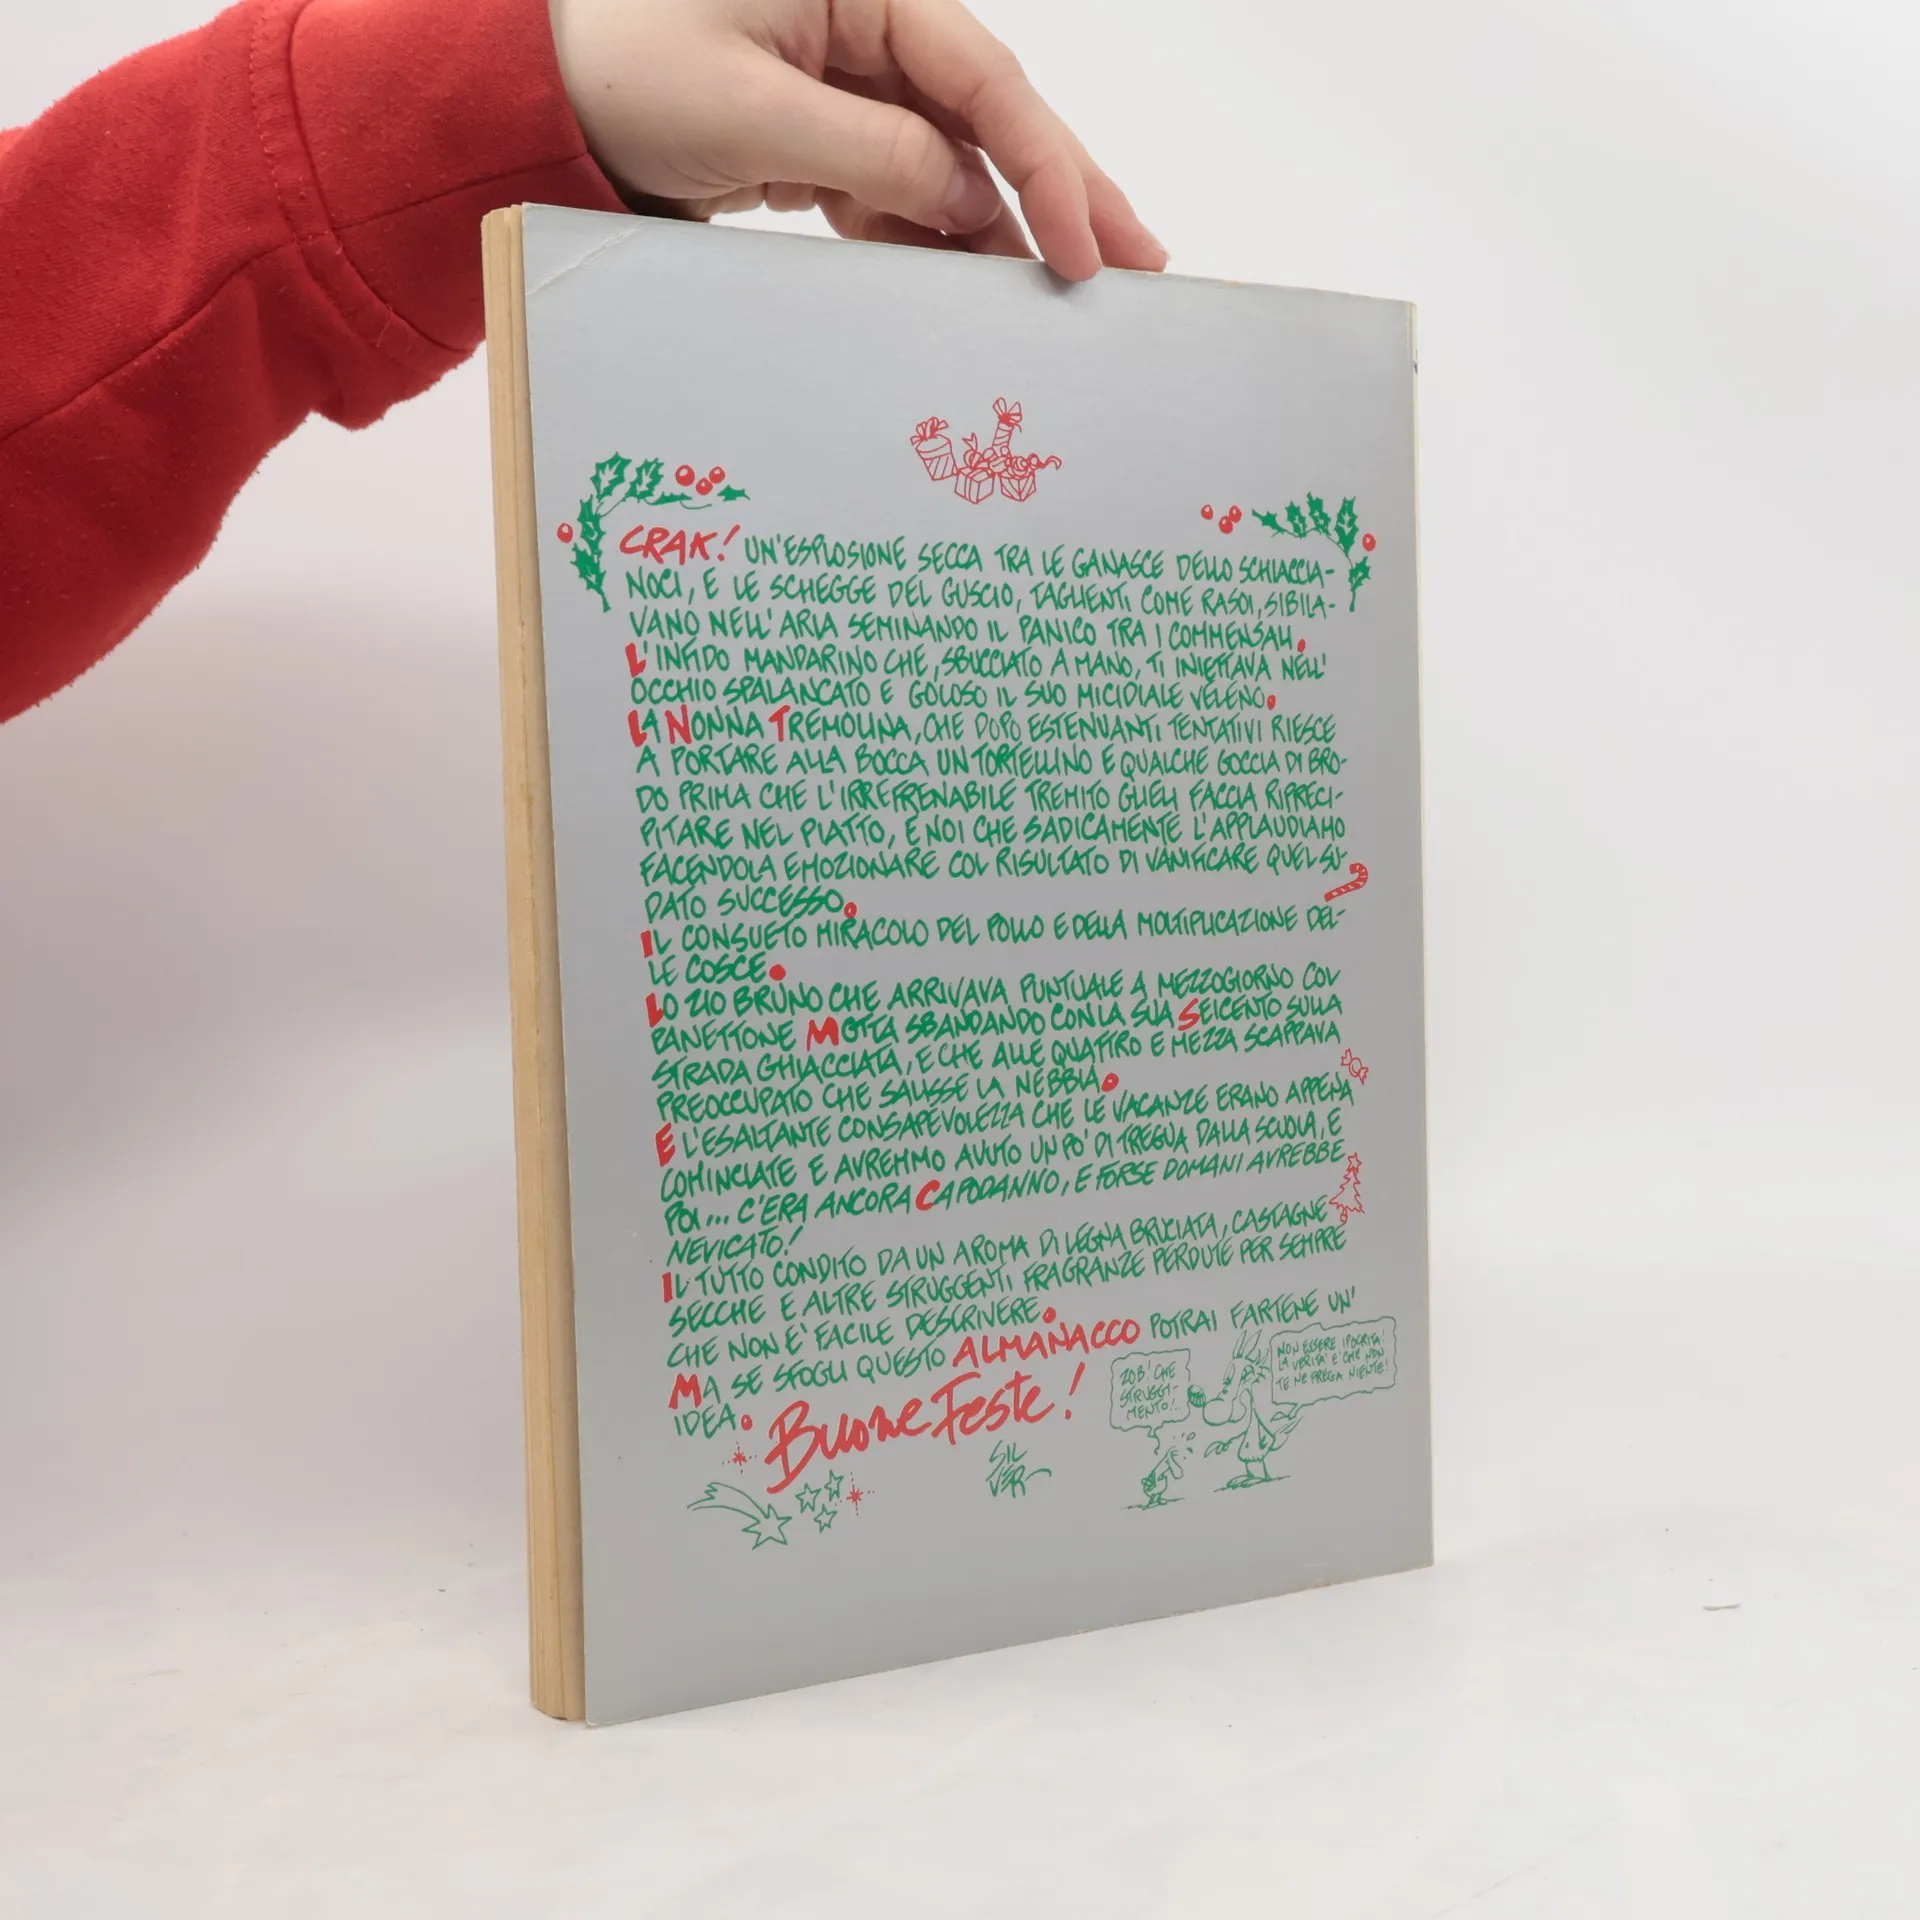 CRAK! UN'ESPLOSIONE SECCA TRA LE GANASCE DELLO SCHIACCIA-
NOCI, E LE SCHEGGE DEL GUSCIO, TAGLIENTI COME RASOI, SIBILA-
VANO NELL'ARIA SEMINANDO IL PANICO TRA I COMMENSALI.
L'INFIDO MANDARINO CHE, SBUCCIATO A MANO, TI INIETTAVA NELL'
OCCHIO SPALANCATO E GOLOSO IL SUO MICIDIALE VELENO.
LA NONNA TREMOLINA, CHE DOPO ESTENUANTI TENTATIVI RIESCE
A PORTARE ALLA BOCCA UN TORTELLINO E QUALCHE GOCCIA DI BRO-
DO PRIMA CHE L'IRREFRENABILE TREMITO GLIELI FACCIA RIPRECI-
PITARE NEL PIATTO, E NOI CHE SADICAMENTE L'APPLAUDIAMO
FACENDOLA EMOZIONARE COL RISULTATO DI VANIFICARE QUEL SU-
DATO SUCCESSO.
IL CONSUETO MIRACOLO DEL POLLO E DELLA MOLTIPLICAZIONE DEL-
LE COSCE.
LO ZIO BRUNO CHE ARRIVAVA PUNTUALE A MEZZOGIORNO COL
PANETTONE MOTTA SBANDANDO CON LA SUA SEICENTO SULLA
STRADA GHIACCIATA, E CHE ALLE QUATTRO E MEZZA SCAPPAVA
PREOCCUPATO CHE SALISSE LA NEBBIA.
E L'ESALTANTE CONSAPEVOLEZZA CHE LE VACANZE ERANO APPENA
COMINCIATE E AVREMMO AVUTO UN PO' DI TREGUA DALLA SCUOLA, E
POI... C'ERA ANCORA CAPODANNO, E FORSE DOMANI AVREBBE
NEVICATO!
IL TUTTO CONDITO DA UN AROMA DI LEGNA BRUCIATA, CASTAGNE
SECCHE E ALTRE STRUGGENTI FRAGRANZE PERDUTE PER SEMPRE
CHE NON E' FACILE DESCRIVERE.
MA SE SFOGLI QUESTO ALMANACCO POTRAI FARTENE UN'
IDEA.
Buone Feste!
SIL
VER
ZOB! CHE
STRUGGI-
MENTO!..
NON ESSERE IPOCRITA!
LA VERITA' E' CHE NON
TE NE FREGA NIENTE!